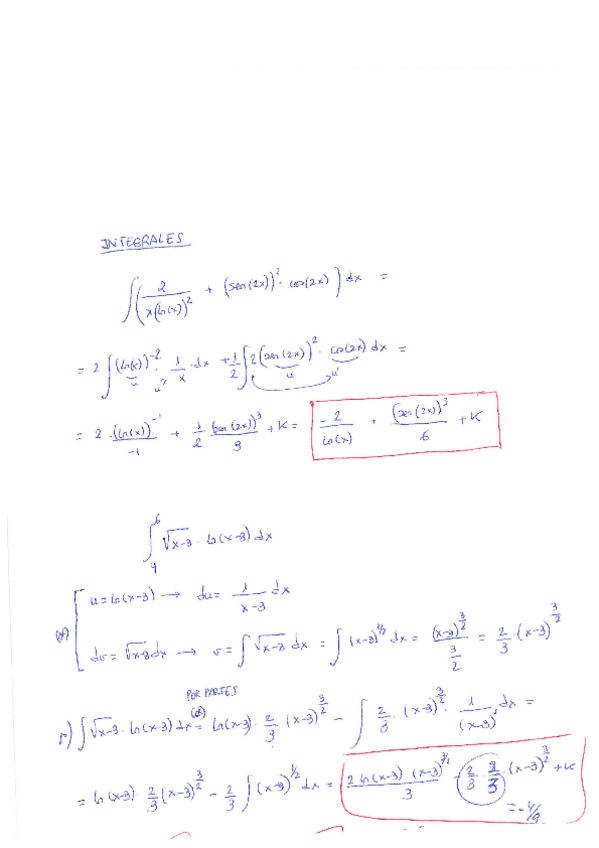 INTEGRALES
∫(2/(x(ln(x))²) + (sen(2x))² · cos(2x)) dx =
= 2 ∫(ln(x))⁻² · 1/x · dx + 1/2 ∫ 2(sen(2x))² · cos(2x) dx =
u u' u u'
= 2 · (ln(x))⁻¹/-1 + 1/2 (sen(2x))³/3 + K = -2/ln(x) + (sen(2x))³/6 + K
∫₄⁶ √x-3 · ln(x-3) dx
u = ln(x-3) → du = 1/(x-3) dx
dv = √x-3 dx → v = ∫ √x-3 dx = ∫ (x-3)^(1/2) dx = (x-3)^(3/2)/(3/2) = 2/3 (x-3)^(3/2)
POR PARTES
∫ √x-3 · ln(x-3) dx = ln(x-3) · 2/3 (x-3)^(3/2) - ∫ 2/3 · (x-3)^(3/2) · 1/(x-3) dx =
= ln(x-3) · 2/3 (x-3)^(3/2) - 2/3 ∫ (x-3)^(1/2) dx = 2 ln(x-3) · (x-3)^(3/2)/3 - 2/3 · 2/3 · (x-3)^(3/2) + K
= -4/9